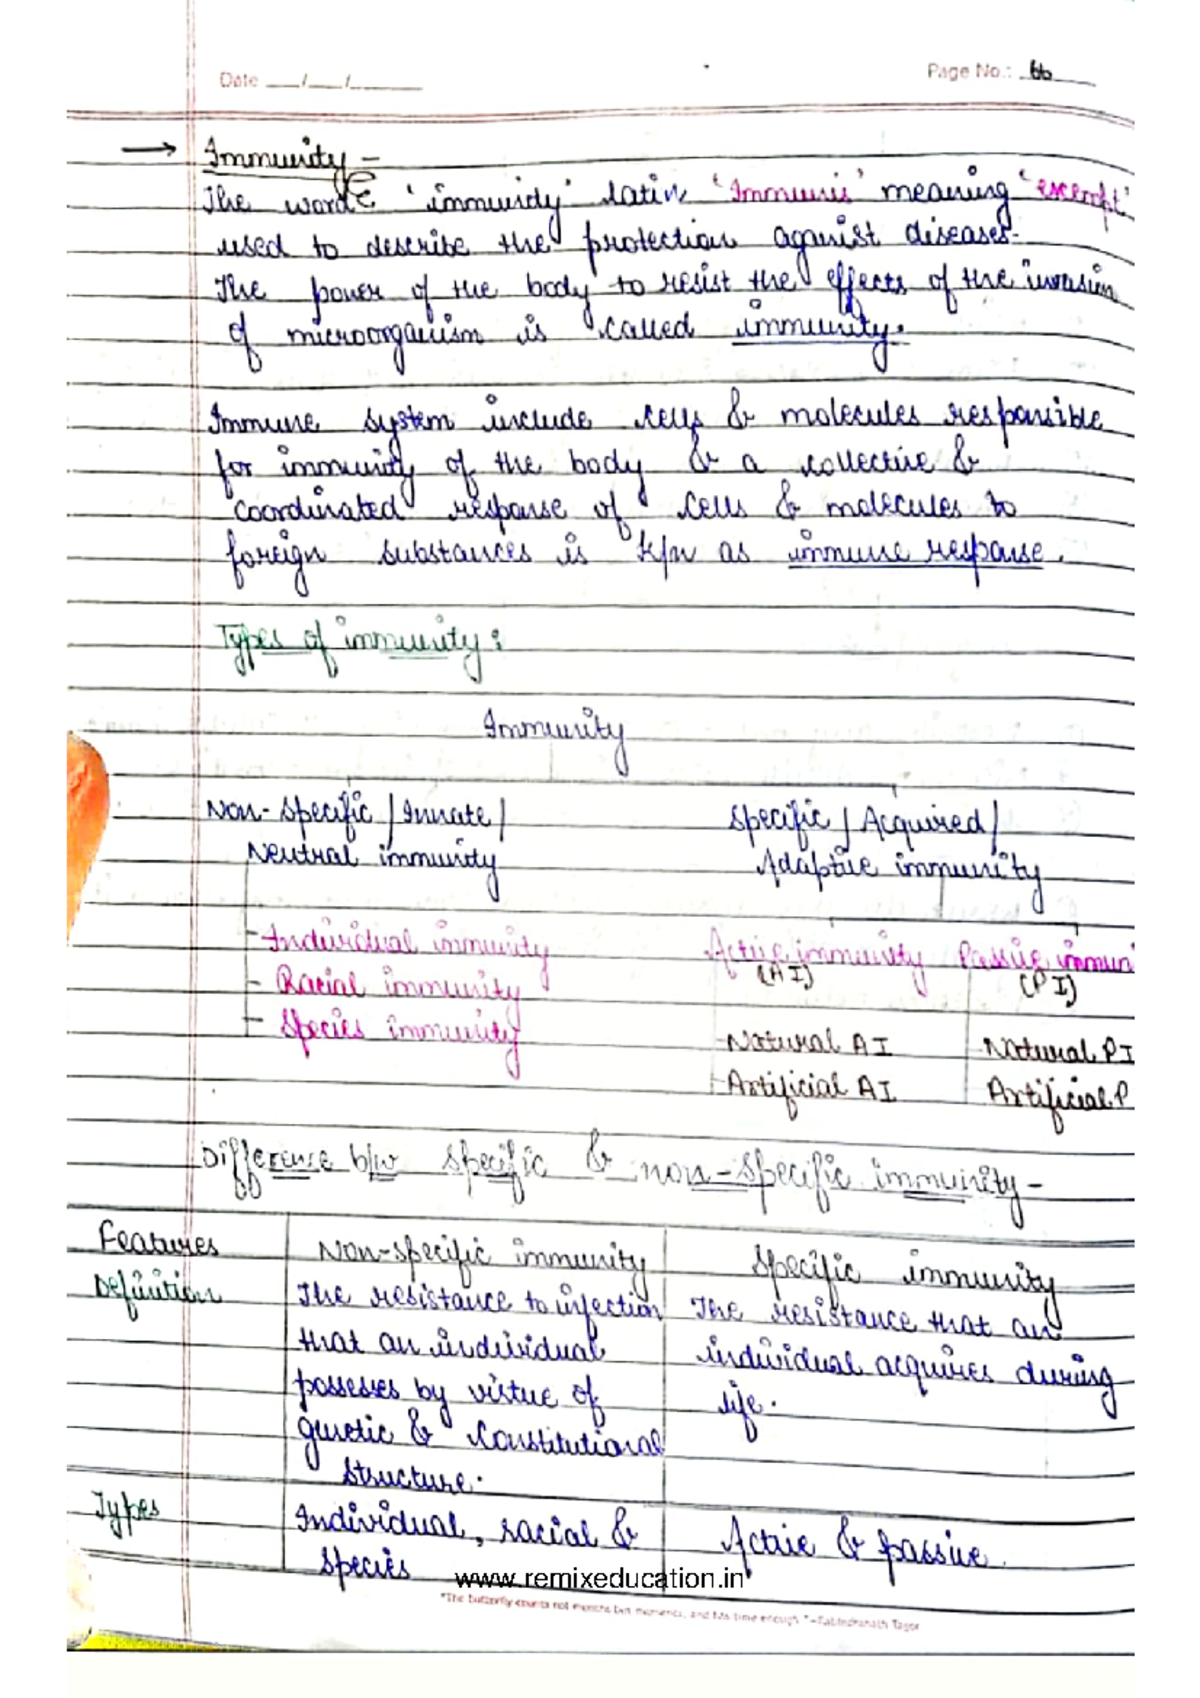 Date __/__/____ Page No.: 66
→ Immunity -
The word 'immunity' latin 'Immunis' meaning 'exempt'
used to describe the protection against diseases.
The power of the body to resist the effects of the invasion
of microorganism is called immunity.
Immune system include cells & molecules responsible
for immunity of the body & a collective &
coordinated response of cells & molecules to
foreign substances is k/n as immune response.
Types of immunity:
Immunity
Non-specific / Innate / Specific / Acquired /
Neutral immunity Adaptive immunity
- Individual immunity Active immunity Passive immuni
- Racial immunity (AI) (PI)
- Species immunity
Natural AI Natural PI
Artificial AI Artificial P
Difference b/w specific & non-specific immunity -
Features Non-specific immunity Specific immunity
Definition The resistance to infection The resistance that an
that an individual individual acquires during
possesses by virtue of life.
genetic & constitutional
structure.
Types Individual, racial & Active & passive.
species
www.remixeducation.in
"The butterfly counts not months but moments, and has time enough." -Rabindranath Tagor